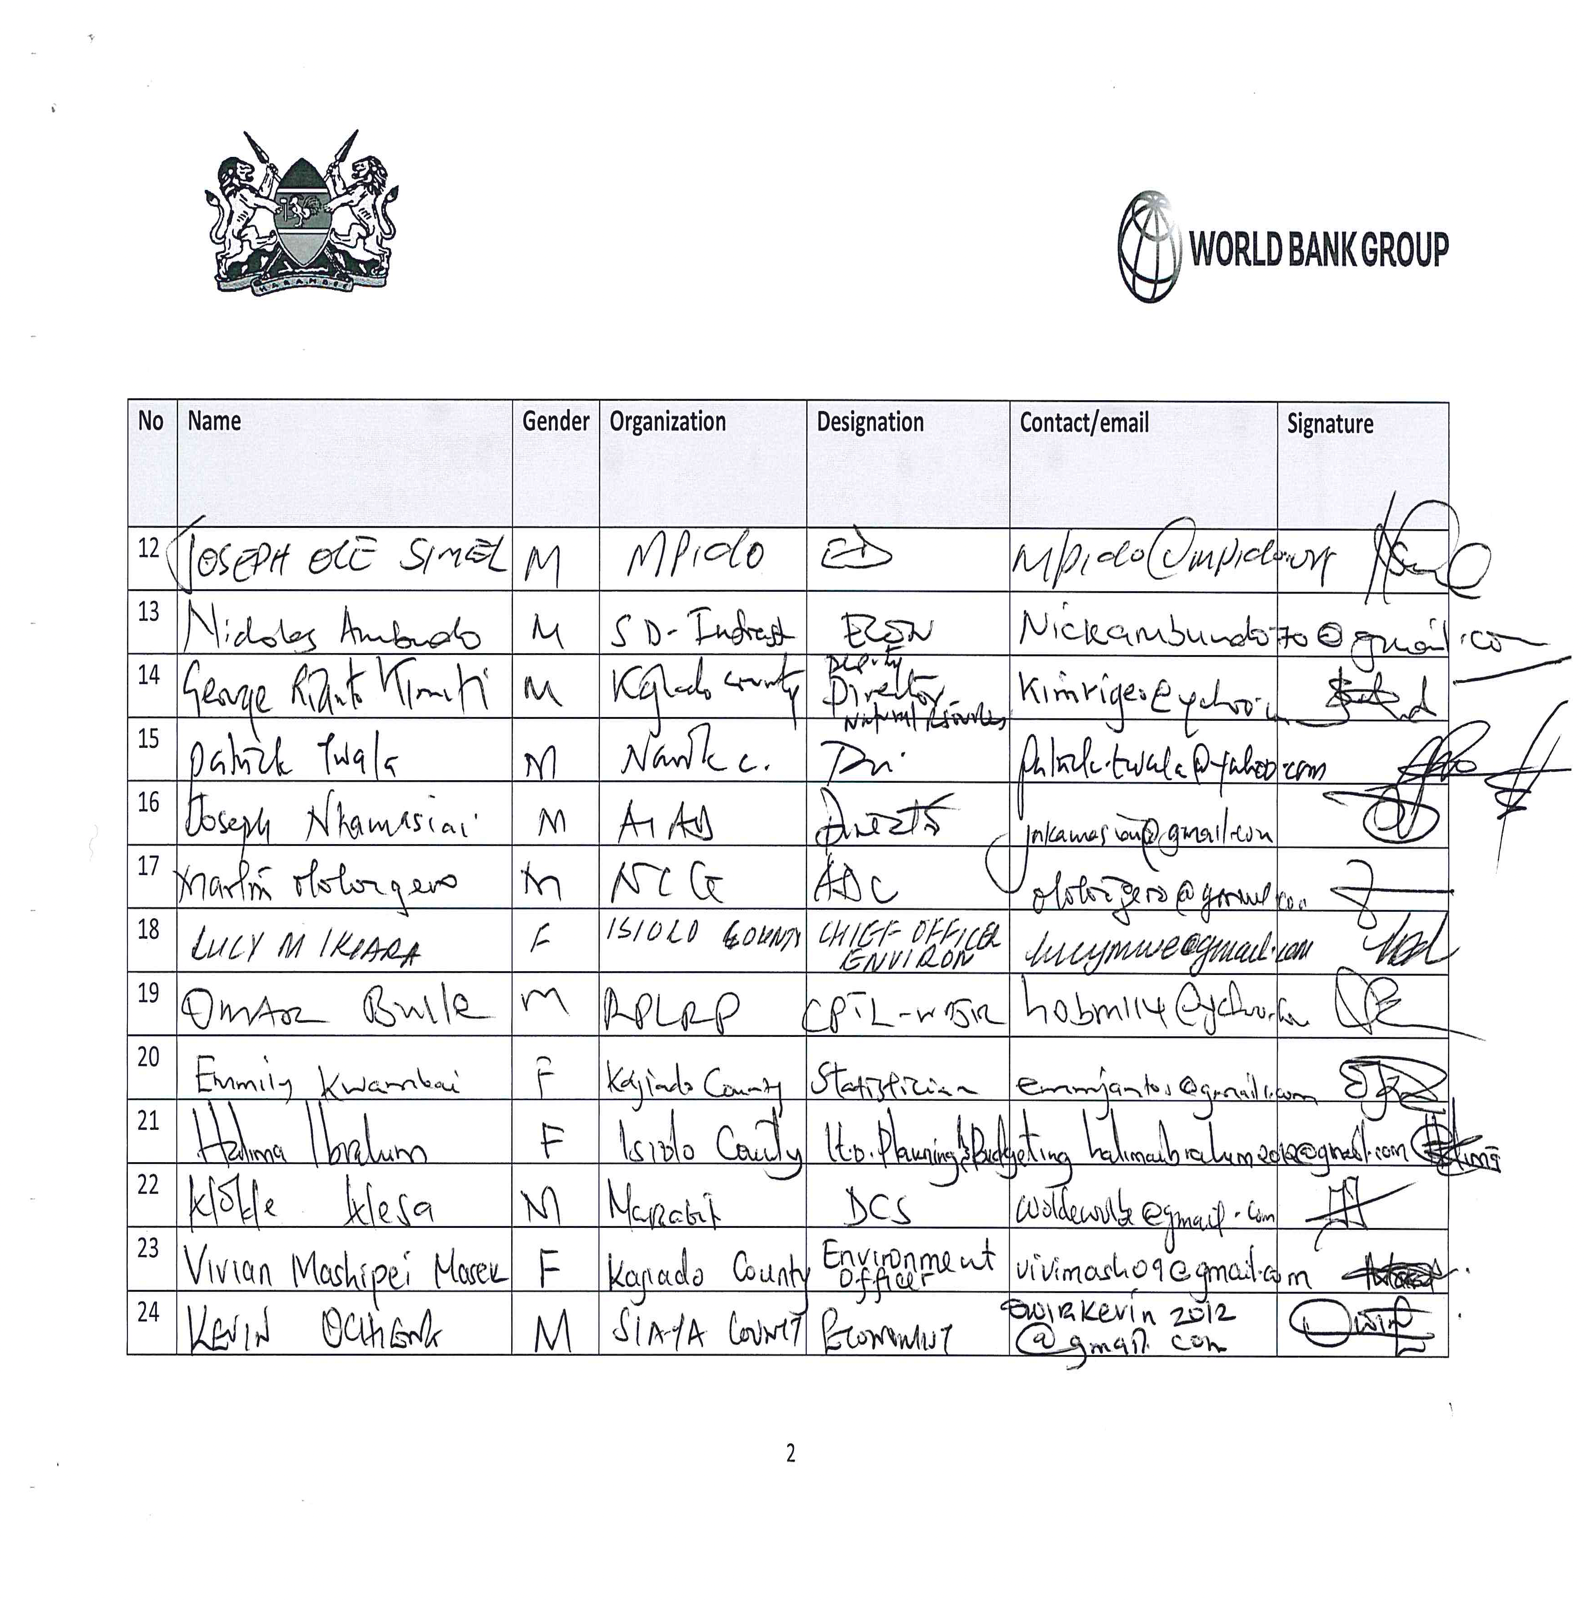 HARAMBEE
WORLD BANK GROUP
No Name Gender Organization Designation Contact/email Signature
12 JOSEPH OLE SIMEL M MPIDO ED mpido@mpido.org
13 Nicholas Ambundo M SD- Infrast ECON Nickambundo70@gmail.co
14 George M Kajiado County Deputy Director Natural Resources
15 Patrick Twala M Narok c. Dir. patrick.twala@yahoo.com
16 Joseph Nkamasiai M Director jnkamasiai@gmail.com
17 Martin Ololoigero M NCG ADC ololoigero@gmail.com
18 LUCY M IKIARA F ISIOLO COUNTY CHIEF OFFICER ENVIRON lucymwe@gmail.com
19 OMAR Bulle M RPLRP CPIL-WAJIR
20 Emmily Kwambai F Kajiado County Statistician emmjantos@gmail.com
21 Halima Ibrahim F Isiolo County Planning & Budgeting halimaibrahim2012@gmail.com
22 M Marsabit DCS @gmail.com
23 Vivian Mashipei Masek F Kajiado County Environment Officer vivimash09@gmail.com
24 KEVIN OCHIENG M SIAYA COUNTY Economist owirkevin2012
@gmail.com
2